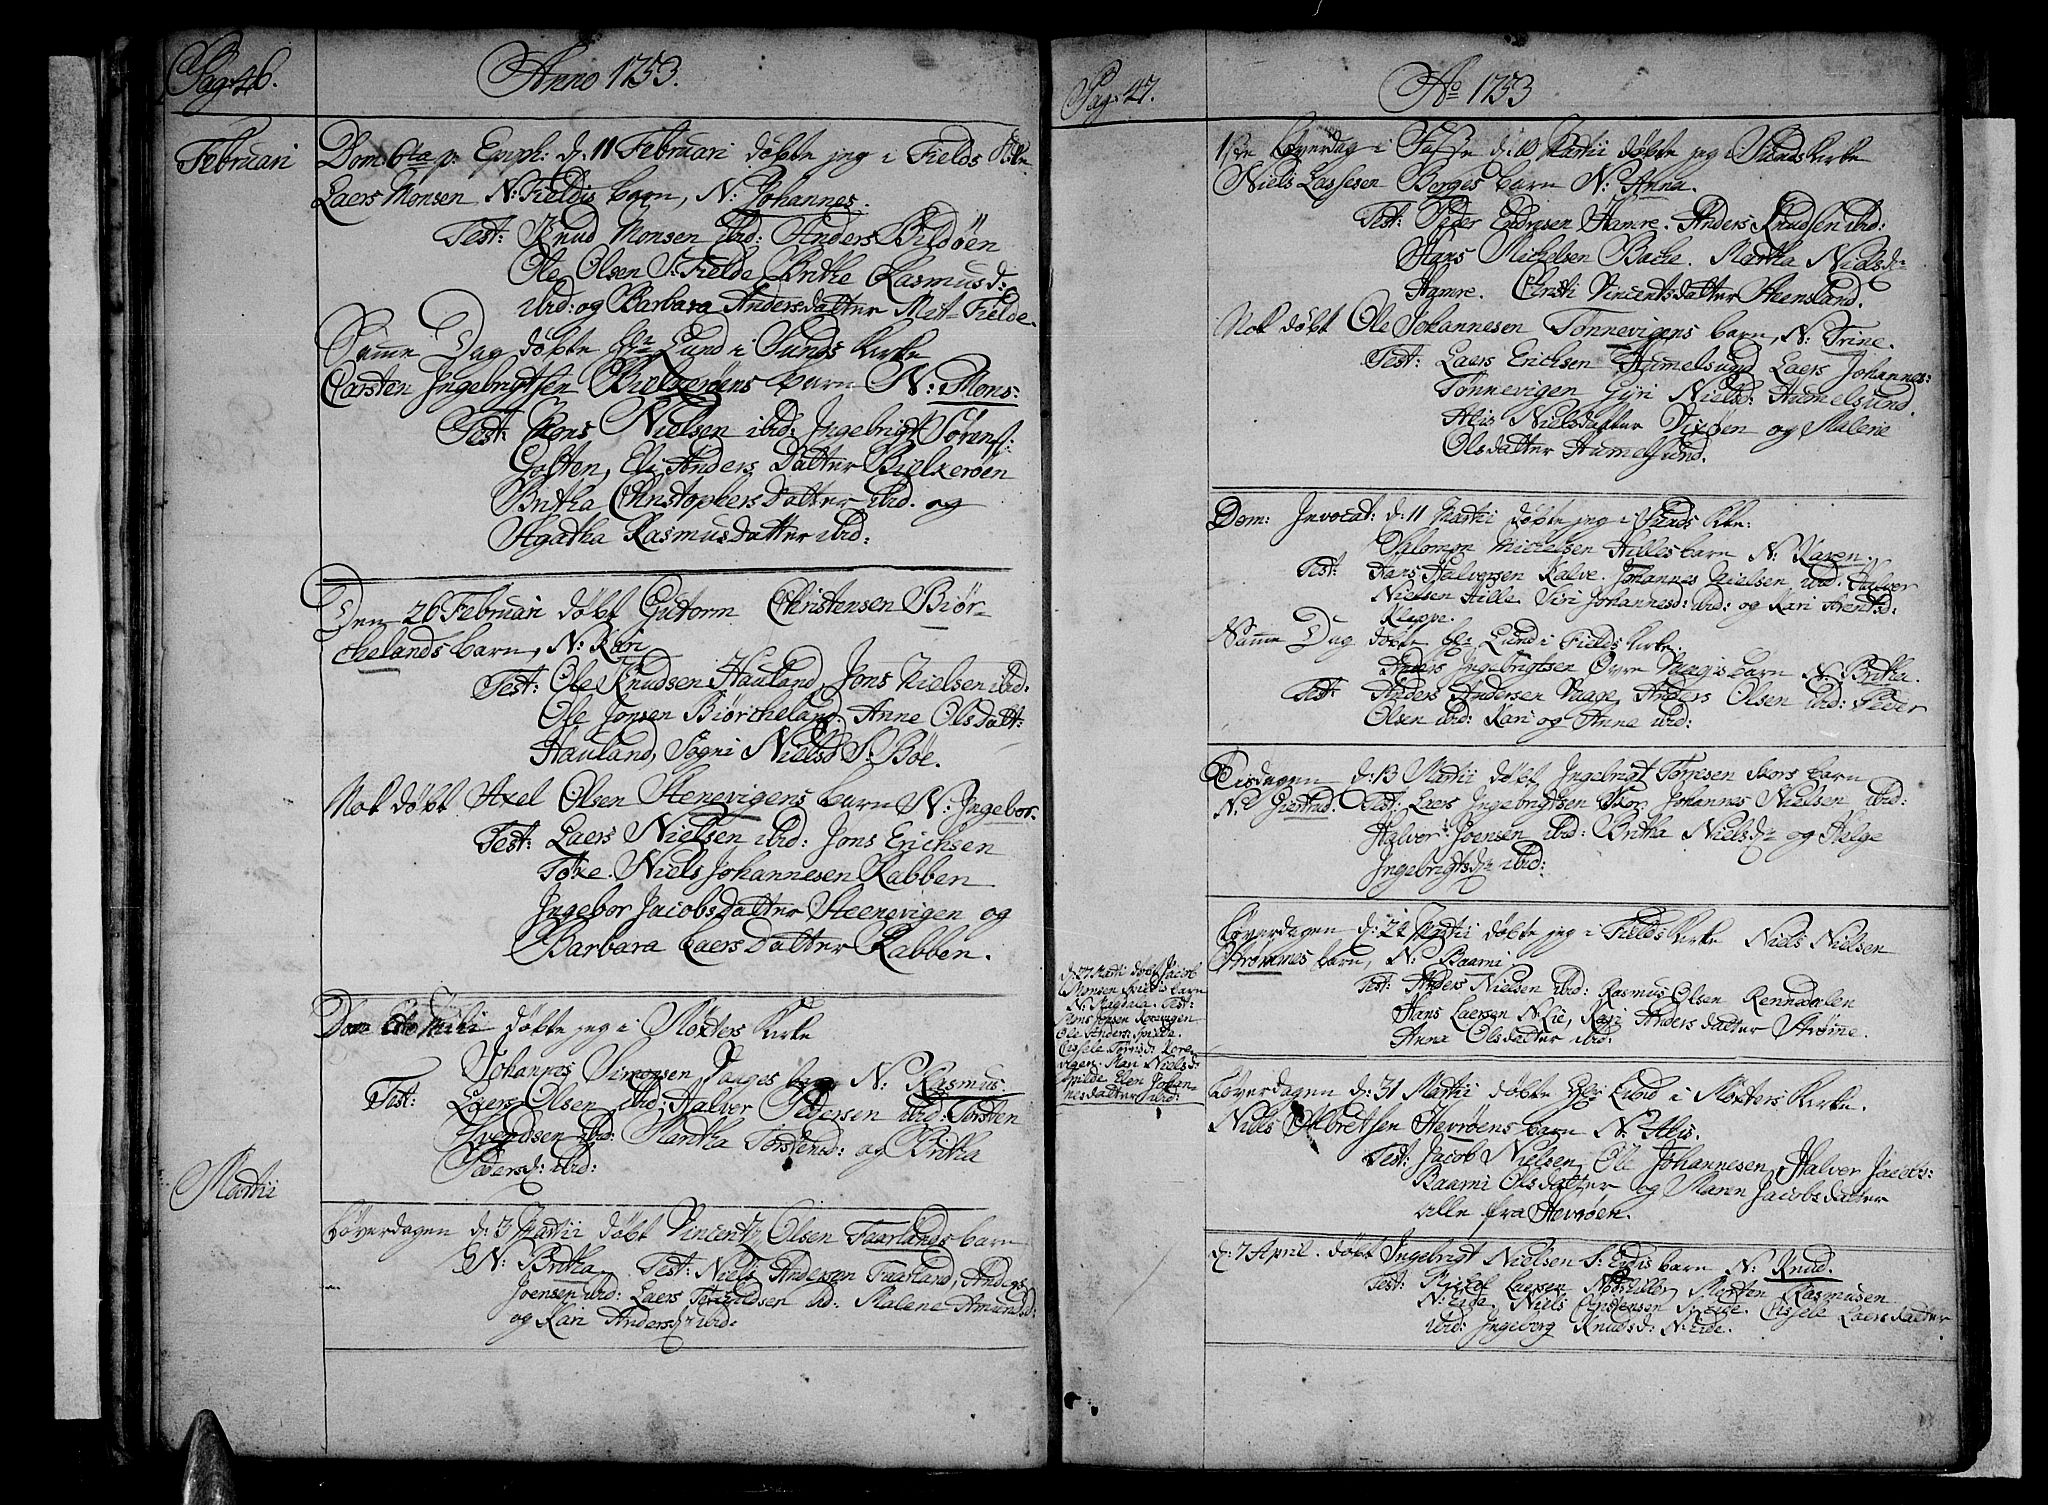 Pag: 46.
Anno 1753.
Februari
Dom: 6ta p: Epiph: d: 11 Februari döbte jeg i Fields Kirke
Laers Monsen N: Fieldis barn, N: Johannes.
Test: Knud Monsen ibid: Anders Bildöen
Ole Olsen S: Fielde, Britha Rasmusd:
ibid: og Barbara Andersdatter Mit-Fielde.
Samme Dag döbte Hr: Lund i Sunds Kirke
Carsten Ingebrigtsen Bielkeröens barn N: Mons:
Test: Mons Nielsen ibid: Ingebrigt Sörens:
Golten, Eli Anders Datter Bielkeröen
Britha Christophers datter ibid. og
Agatha Rasmusdatter ibid:
Den 26 Februari döbt Gutorm Christensen Biör-
chelands barn, N: Kari
Test: Ole Knudsen Hauland, Jons Nielsen ibid:
Ole Jonsen Biörcheland, Anne Olsdatt:
Hauland, Sogni Nielsd S: Böe.
Nok döbt Axel Olsen Stenevigens barn N: Ingebor.
Test: Laers Nielsen ibid: Jons Erichsen
Töxe. Niels Johannesen Rabben
Ingebor Jacobsdatter Steenevigen og
Barbara Laers Datter Rabben.
Dom: Esto Mihi döbte jeg i Möxters Kirke
Johannes Simonsen Waages barn N: Rasmus.
Test: Laers Olsen ibid: Halver Pedersen ibid: Torsten
Svendsen ibid: Martha Torstensd: og Britha
Pedersd: ibid:
Martii
Löverdagen d: 3 Martii döbt Vincentz Olsen Faarlands barn
N: Britha. Test: Niels Andersen Faarland, Anders
Joensen ibid: Laers ibid: Malene Amundsd:
og Kari Andersdr ibid:
Pag: 47.
Ao 1753
1ste Löverdag i Faste d: 10 Martii döbte jeg i Sunds Kirke
Niels Lassesen Berges barn N: Anna.
Test: Peder Endresen Hamre. Anders Knudsen ibid:
Hans Michelsen Backe. Martha Nielsdr
Hamre. Christi Vincentsdatter Steensland.
Nok döbt Ole Johannesen Tönnevigens barn, N: Trine.
Test: Laers Erichsen Hummelsund Laers Johannes:
Tönnevigen Gyri Nielsd: Hummelsund.
Alis Nielsdatter Vixöen og Malene
Olsdatter Hummelsund.
Dom: Invocat: d: 11 Martii döbte jeg i Sunds Kke:
Salomon Michelsen Hilles barn N: Karen.
Test: Hans Halversen Kalve. Johannes Nielsen ibid: Halver
Nielsen Hille. Siri Johannesd: ibid: og Kari Arentsd:
Kleppe.
Samme Dag döbte Hr Lund i Fields Kirke
Anders Ingebrigtsen Övre Vaagis barn N: Britha.
Test: Anders Andersen Vaage, Anders Olsen ibid: Peder
Olsen ibid: Kari og Anne ibid:
Tisdagen d: 13 Martii döbt Ingebrigt Torrisen Skors barn
N: Giertrud. Test: Laers Ingebrigtsen Skor, Johannes Nielsen ibid:
Halver Joensen ibid: Britha Nielsdr og Helge
Ingebrigtsdr ibid:
Löverdagen d: 24 Martii döbte jeg i Fields Kirke Niels Nielsen
Strömmes barn, N: Baarni.
Test: Anders Nielsen ibid: Rasmus Olsen Rennedalen
Hans Laersen N: Lie, Kari Anders datter Strömme.
Anna Olsdatter ibid:
d: 27 Martii döbt Jacob
Monsen Spildis barn
N: Magdala. Test:
Jons Jonsen Korsvigen
Ole Anders: Spilde.
Cissele Torrisd: Kors-
vigen. Mari Nielsd:
Spilde Elen Johan-
nesdatter ibid:
Löverdagen d: 31 Martii döbte Hr: Lund i Möxters Kirke.
Niels Albretsen Hevröens barn N: Alis.
Test: Jacob Nielsen, Ole Johannesen, Halver Jacobs:
Baarni Olsdatter og Maren Jacobsdatter
alle fra Hevröen.
d: 7 April. döbt Ingebrigt Nielsen S: Eidis barn N: Knud.
Test: Michel Laersen Morten Rasmusen
N: Eide. Niels N: Eide. Cissele Laersdatter
ibid: Ingeborg Knudsd: N: Eide.